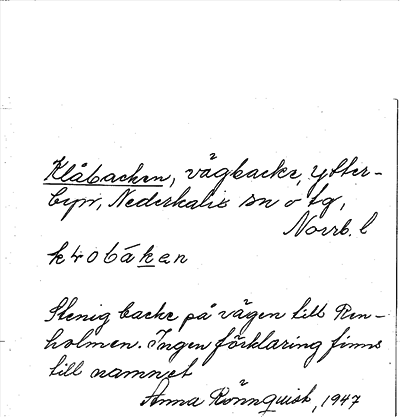 Klåbacken, vägbacke, Ytter-
byn, Nederkalix sn o tg,
Norrb. l
k4obáken
Stenig backe på vägen till Ren-
holmen. Ingen förklaring finns
till namnet
Anna Rönnquist, 1947